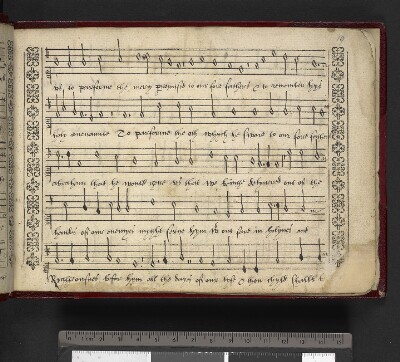 us, to performe the mercy promised to our fore fathers & to remember hys
holy covenannte To performe the oth whych he sware to our fore father
abraham that he would geve us that we beinge delyvered out of the
handes of our enemyes myght serve hym wt out feare in holynes and
Ryghteousnes before hym all the dayes of our lyfe & thou chyld shalt b